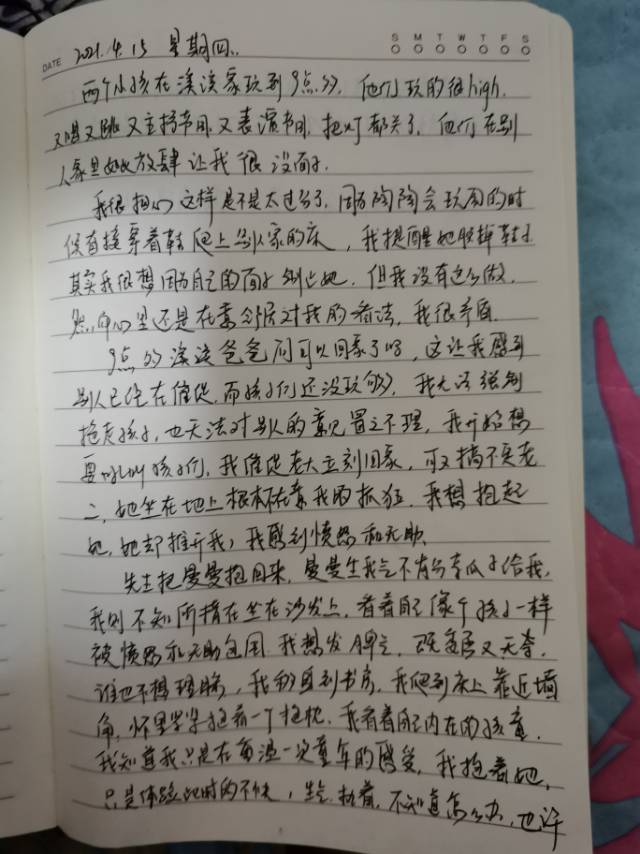 DATE 2021.4.15 星期四. S M T W T F S
两个小孩在溪溪家玩到9点多, 他们玩的很high,
又唱又跳又主持节目又表演节目, 把灯都关了, 他们在别
人家里如此放肆让我很没面子.
我很担心这样是不是太过分了, 因为陶陶会玩闹的时
候直接穿着鞋爬上别人家的床, 我提醒她脱掉鞋子
其实我很想因为自己的面子制止她, 但我没有这么做.
然, 内心里还是在意邻居对我的看法, 我很矛盾.
9点多溪溪爸爸问可以回家了吗, 这让我感到
别人已经在催促, 而孩子们还没玩够, 我无法强制
拖走孩子, 也无法对别人的意见置之不理, 我开始想
要吼叫孩子们, 我催促老大立刻回家, 可又搞不定老
二, 她坐在地上根本不在意我的抓狂, 我想抱起
她, 她却推开我, 我感到愤怒和无助.
先生把曼曼抱回来, 曼曼生我气不肯分香瓜子给我,
我则不知所措在坐在沙发上, 看着自己像个孩子一样
被愤怒和无助包围. 我想发脾气, 既委屈又无奈.
谁也不想理睬, 我躲到书房, 我爬到床上靠近墙
角, 怀里紧紧抱着一个抱枕. 我看着自己内在的孩童.
我知道我只是在重温一次童年的感受, 我抱着她,
只是体验此时的不快, 生气, 执着, 不知道怎么办, 也许